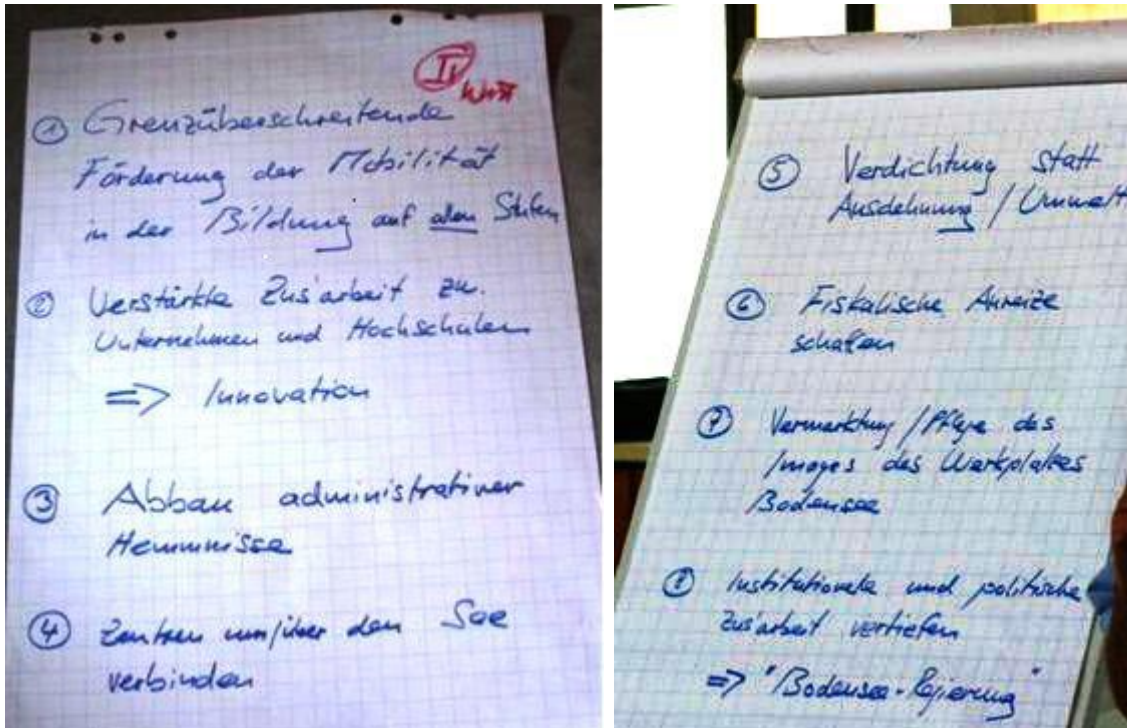 II
① Grenzüberschreitende
Förderung der Mobilität
in der Bildung auf allen Stufen
② Verstärkte Zus'arbeit zw.
Unternehmen und Hochschulen
=> Innovation
③ Abbau administrativer
Hemmnisse
④ Zentren um/über den See
verbinden
⑤ Verdichtung statt
Ausdehnung / Umwelt
⑥ Fiskalische Anreize
schaffen
⑦ Vermarktung / Pflege des
Images des Werkplatzes
Bodensee
⑧ Institutionelle und politische
Zus'arbeit vertiefen
=> "Bodensee-Regierung"